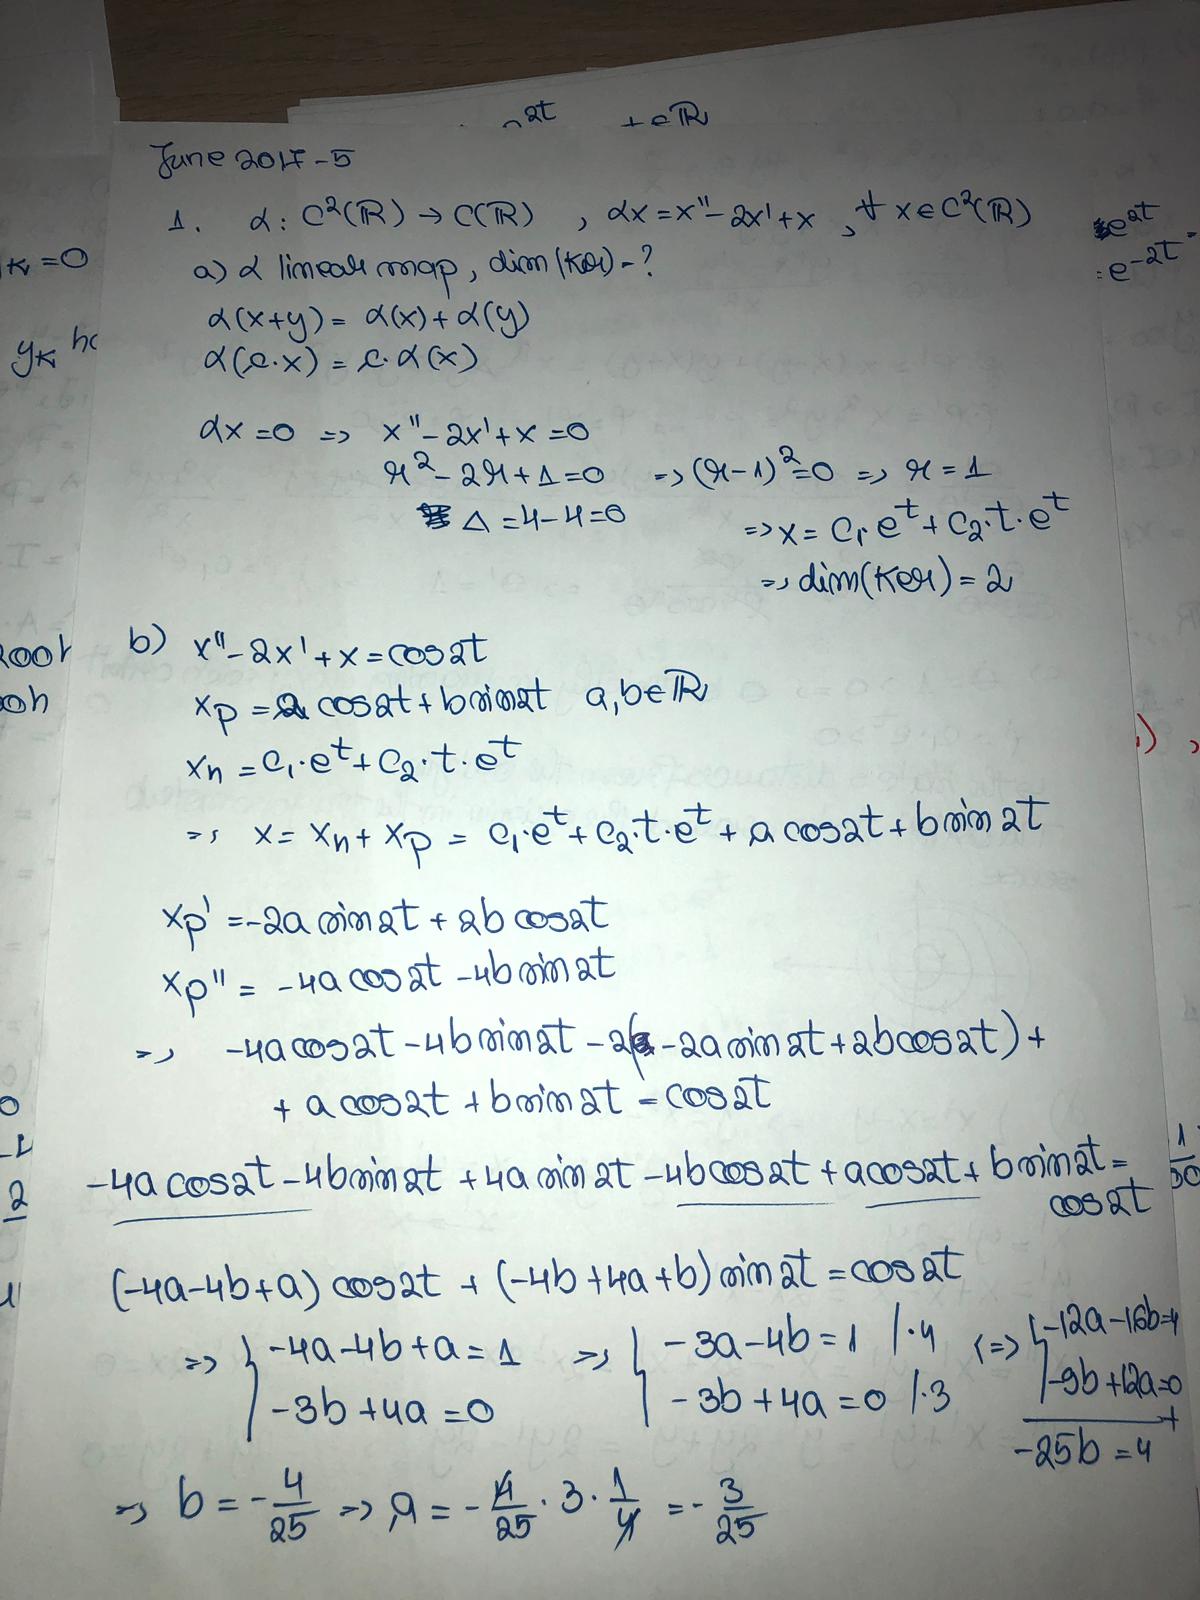 2t    t∈ℝ
June 2017-5
1. α: C²(ℝ) → C(ℝ) , αx = x'' - 2x' + x , ∀ x∈C²(ℝ)
a) α linear map, dim(Ker) - ?
α(x+y) = α(x) + α(y)
α(c·x) = c·α(x)
αx = 0 => x'' - 2x' + x = 0
r² - 2r + 1 = 0 => (r-1)² = 0 => r = 1
Δ = 4-4 = 0 => x = C₁·e^t + C₂·t·e^t
=> dim(Ker) = 2
b) x'' - 2x' + x = cos2t
xp = a cos2t + b sin2t a, b∈ℝ
xh = C₁·e^t + C₂·t·e^t
=> x = xh + xp = C₁·e^t + C₂·t·e^t + a cos2t + b sin2t
xp' = -2a sin2t + 2b cos2t
xp'' = -4a cos2t - 4b sin2t
=> -4a cos2t - 4b sin2t - 2(-2a sin2t + 2b cos2t) +
+ a cos2t + b sin2t = cos2t
-4a cos2t - 4b sin2t + 4a sin2t - 4b cos2t + a cos2t + b sin2t =
cos2t
(-4a-4b+a) cos2t + (-4b+4a+b) sin2t = cos2t
=> { -4a-4b+a = 1 => { -3a-4b = 1 /·4 <=> { -12a-16b=4
-3b+4a = 0 -3b+4a = 0 /·3 -9b+12a=0
+
-25b = 4
=> b = -4/25 => a = -4/25 · 3 · 1/4 = -3/25
k = 0
yk
e^2t
e^-2t
0
-1
2